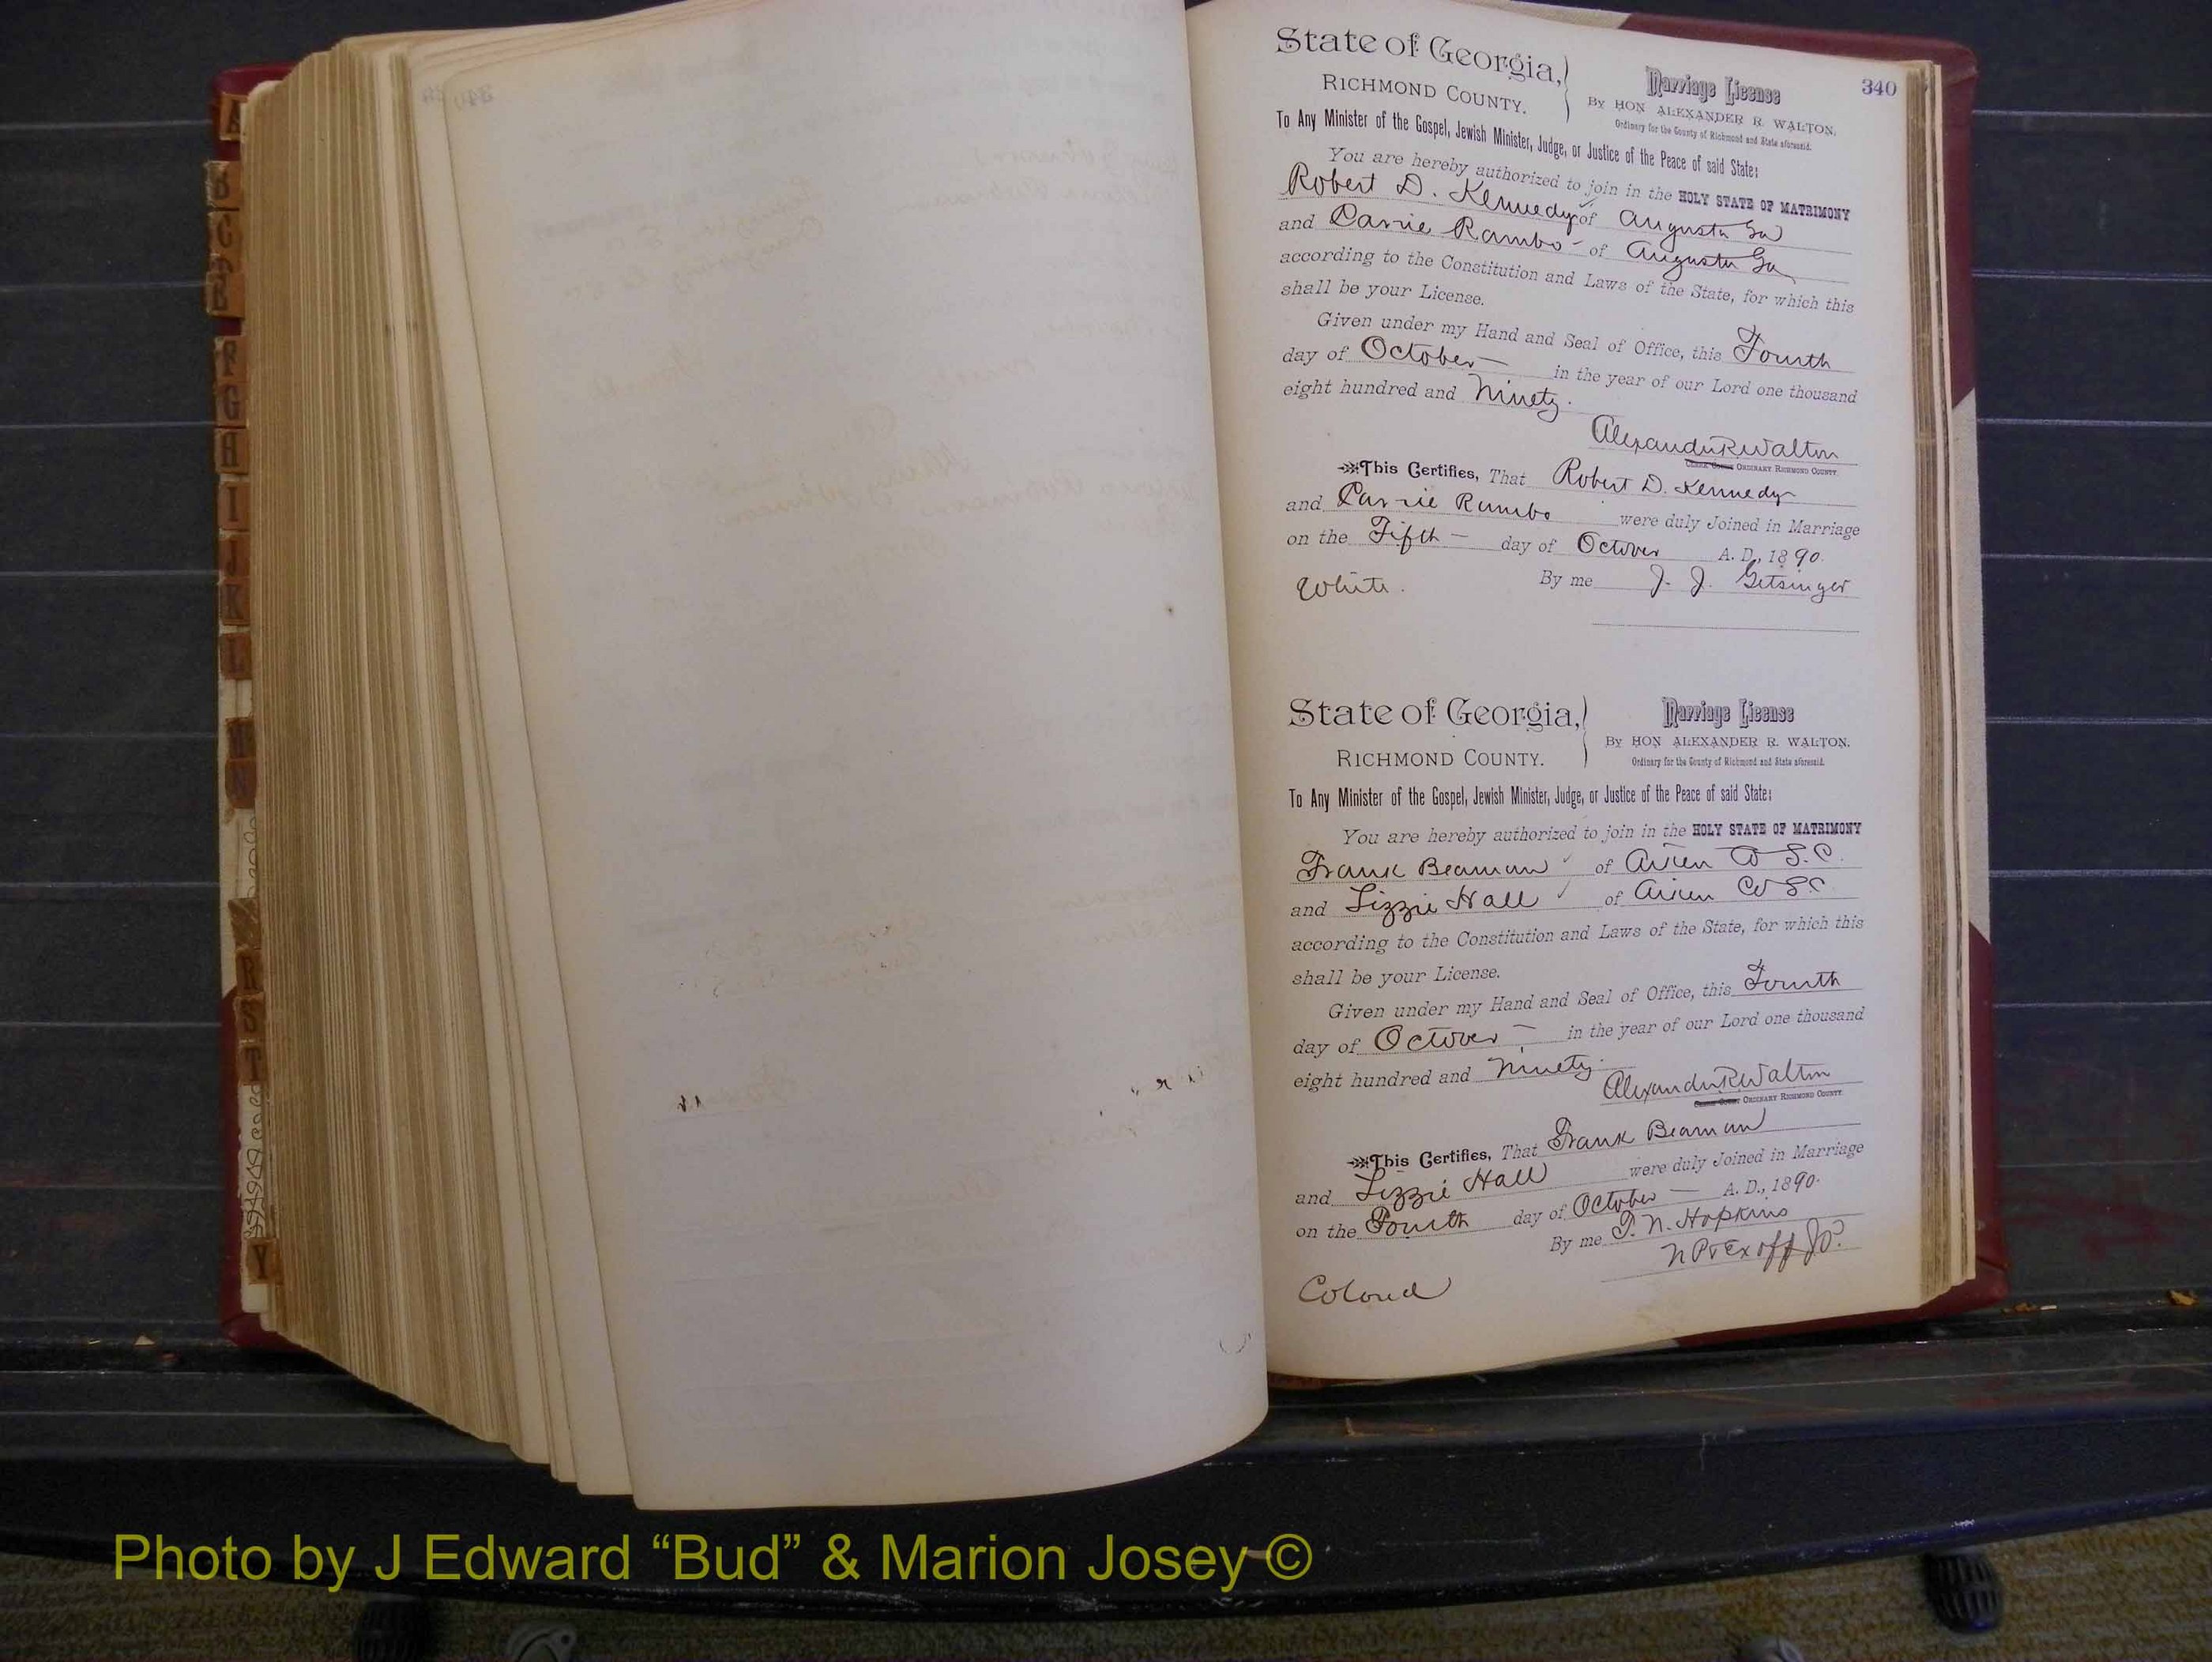 340
State of Georgia,
RICHMOND COUNTY.
Marriage License
By HON ALEXANDER R. WALTON,
Ordinary for the County of Richmond and State aforesaid.
To Any Minister of the Gospel, Jewish Minister, Judge, or Justice of the Peace of said State:
You are hereby authorized to join in the HOLY STATE OF MATRIMONY
Robert D. Kennedy of Augusta Ga
and Carrie Rambo - of Augusta Ga
according to the Constitution and Laws of the State, for which this
shall be your License.
Given under my Hand and Seal of Office, this Fourth
day of October — in the year of our Lord one thousand
eight hundred and Ninety.
Alexander R Walton
ORDINARY RICHMOND COUNTY.
This Certifies, That Robert D. Kennedy
and Carrie Rambo were duly Joined in Marriage
on the Fifth — day of October A. D., 1890.
White. By me J. J. Getsinger
State of Georgia,
RICHMOND COUNTY.
Marriage License
By HON ALEXANDER R. WALTON.
Ordinary for the County of Richmond and State aforesaid.
To Any Minister of the Gospel, Jewish Minister, Judge, or Justice of the Peace of said State:
You are hereby authorized to join in the HOLY STATE OF MATRIMONY
Frank Beaman of Aiken Co S.C.
and Lizzie Hall of Aiken Co S.C
according to the Constitution and Laws of the State, for which this
shall be your License.
Given under my Hand and Seal of Office, this Fourth
day of October — in the year of our Lord one thousand
eight hundred and Ninety
Alexander R Walton
ORDINARY RICHMOND COUNTY.
This Certifies, That Frank Beaman
and Lizzie Hall were duly Joined in Marriage
on the Fourth day of October — A. D., 1890.
By me T. N. Hopkins
N P & Ex off J.P.
Colored
A
B
C
F
G
H
I
J
K
L
M
N
R
S
T
Y
Photo by J Edward “Bud” & Marion Josey ©